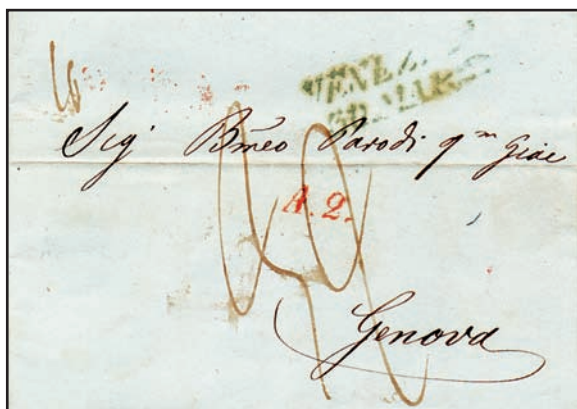 VENEZ.
MAR.
Sigr Bmeo Parodi qm Giac
A. 2.
Genova